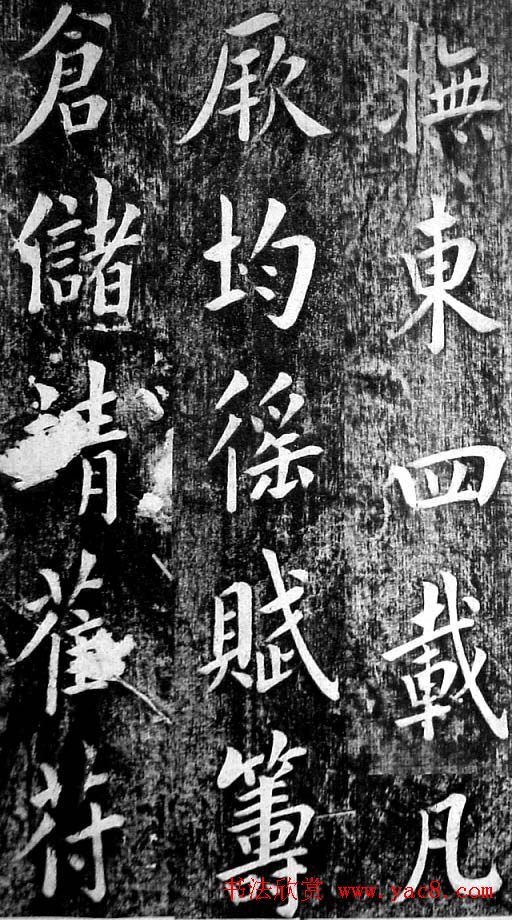 撫東四載凡
厥均徭賦籌
倉儲清萑苻
书法欣赏 www.yac8.com